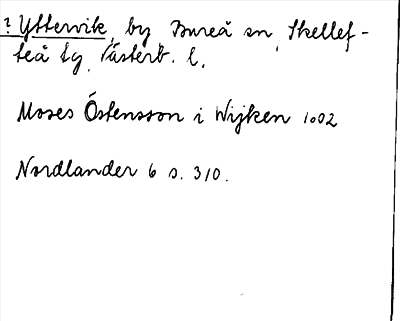 ? Yttervik, by Bureå sn, Skellef-
teå tg, Västerb. l.
Moses Östensson i Wijken 1602
Nordlander 6 s. 310.